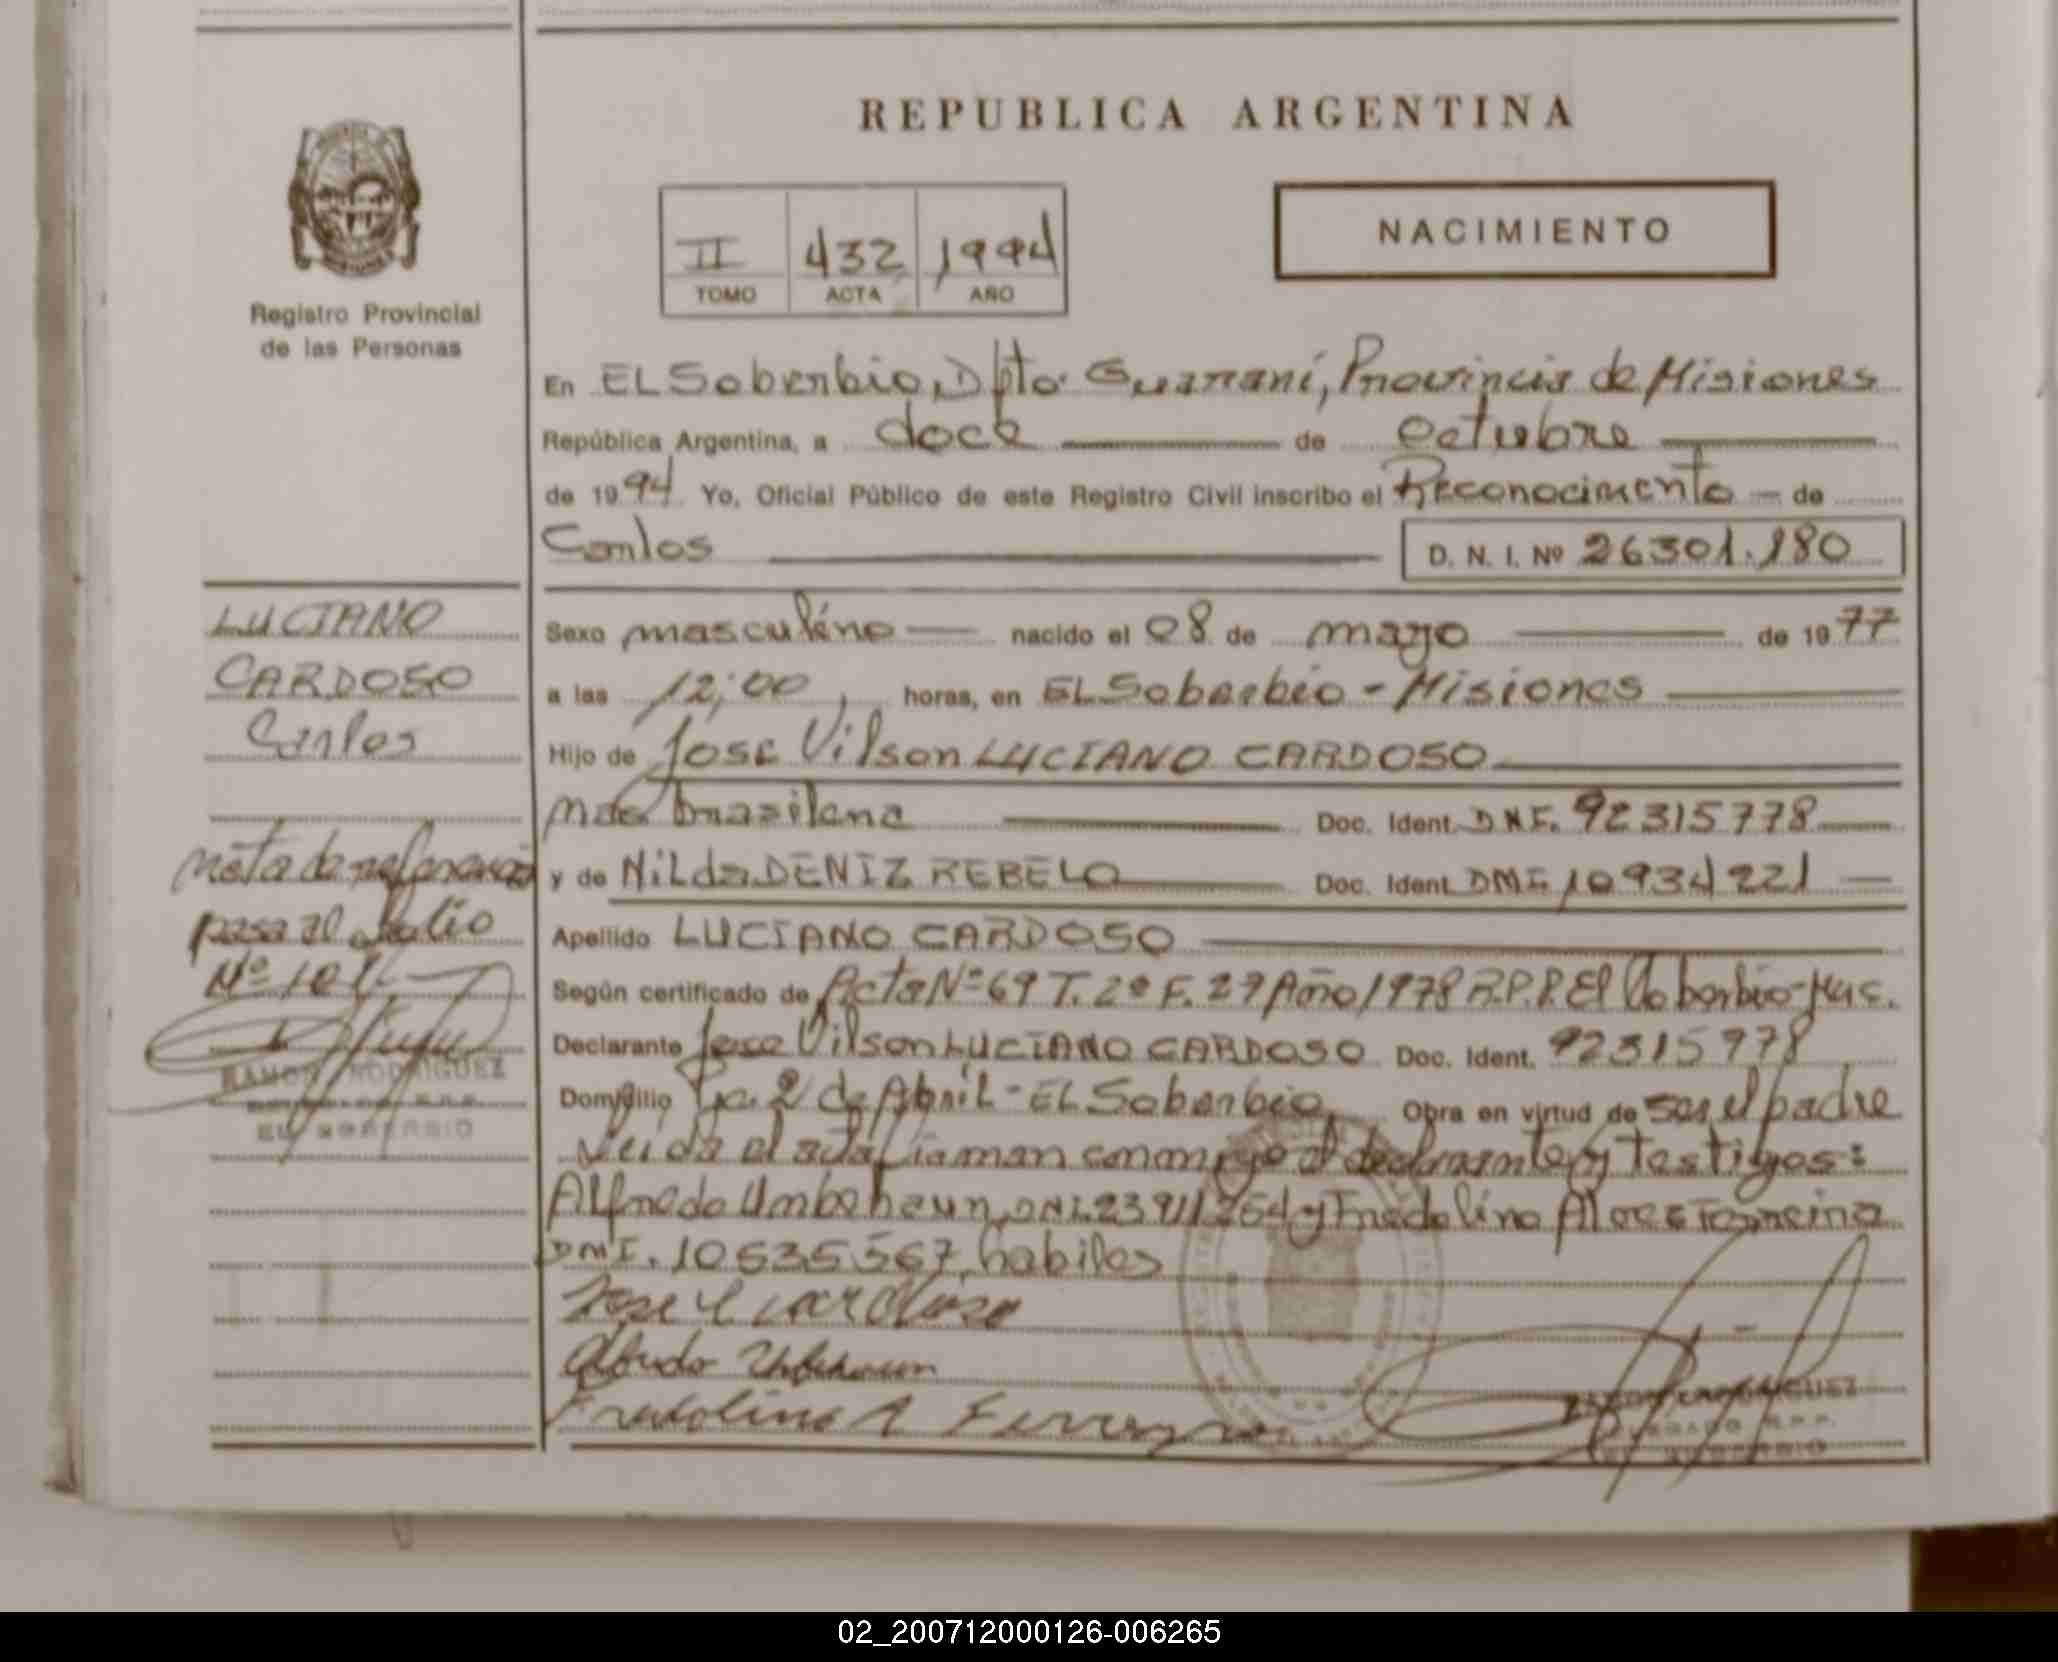 REPUBLICA ARGENTINA
NACIMIENTO
II 432 1994
TOMO ACTA AÑO
Registro Provincial
de las Personas
En EL Soberbio, Dpto. Guaraní, Provincia de Misiones
República Argentina, a doce de octubre
de 1994 Yo, Oficial Público de este Registro Civil inscribo el Reconocimento de
Carlos D. N. I. Nº 26301.180
LUCIANO
CARDOSO
Carlos
Nota de referencia
pasa al folio
Nº
RAMON RODRIGUEZ
EL SOBERBIO
Sexo masculino nacido el 08 de mayo de 1977
a las 12;00 horas, en EL Soberbio - Misiones
Hijo de Jose Vilson LUCIANO CARDOSO
Nac. brasilena Doc. Ident. DNI. 92315778
y de Nilda DENIZ REBELO Doc. Ident. DNI. 10934221
Apellido LUCIANO CARDOSO
Según certificado de Acta Nº 69 T. 2º F. 27 Año 1978 R.P.P. El Soberbio-Mns.
Declarante Jose Vilson LUCIANO CARDOSO Doc. Ident. 92315778
Domicilio 2 de Abril - EL Soberbio. Obra en virtud de ser el padre
Leida el acta firman conmigo el declarante y testigos:
Alfredo Umbehaun, DNI. 23911264 y Fredolino Ferreira
DNI. 10535567, habiles
Jose L Cardoso
Alfredo
Fredolino A Ferreyra
RODRIGUEZ
EL SOBERBIO
02_200712000126-006265